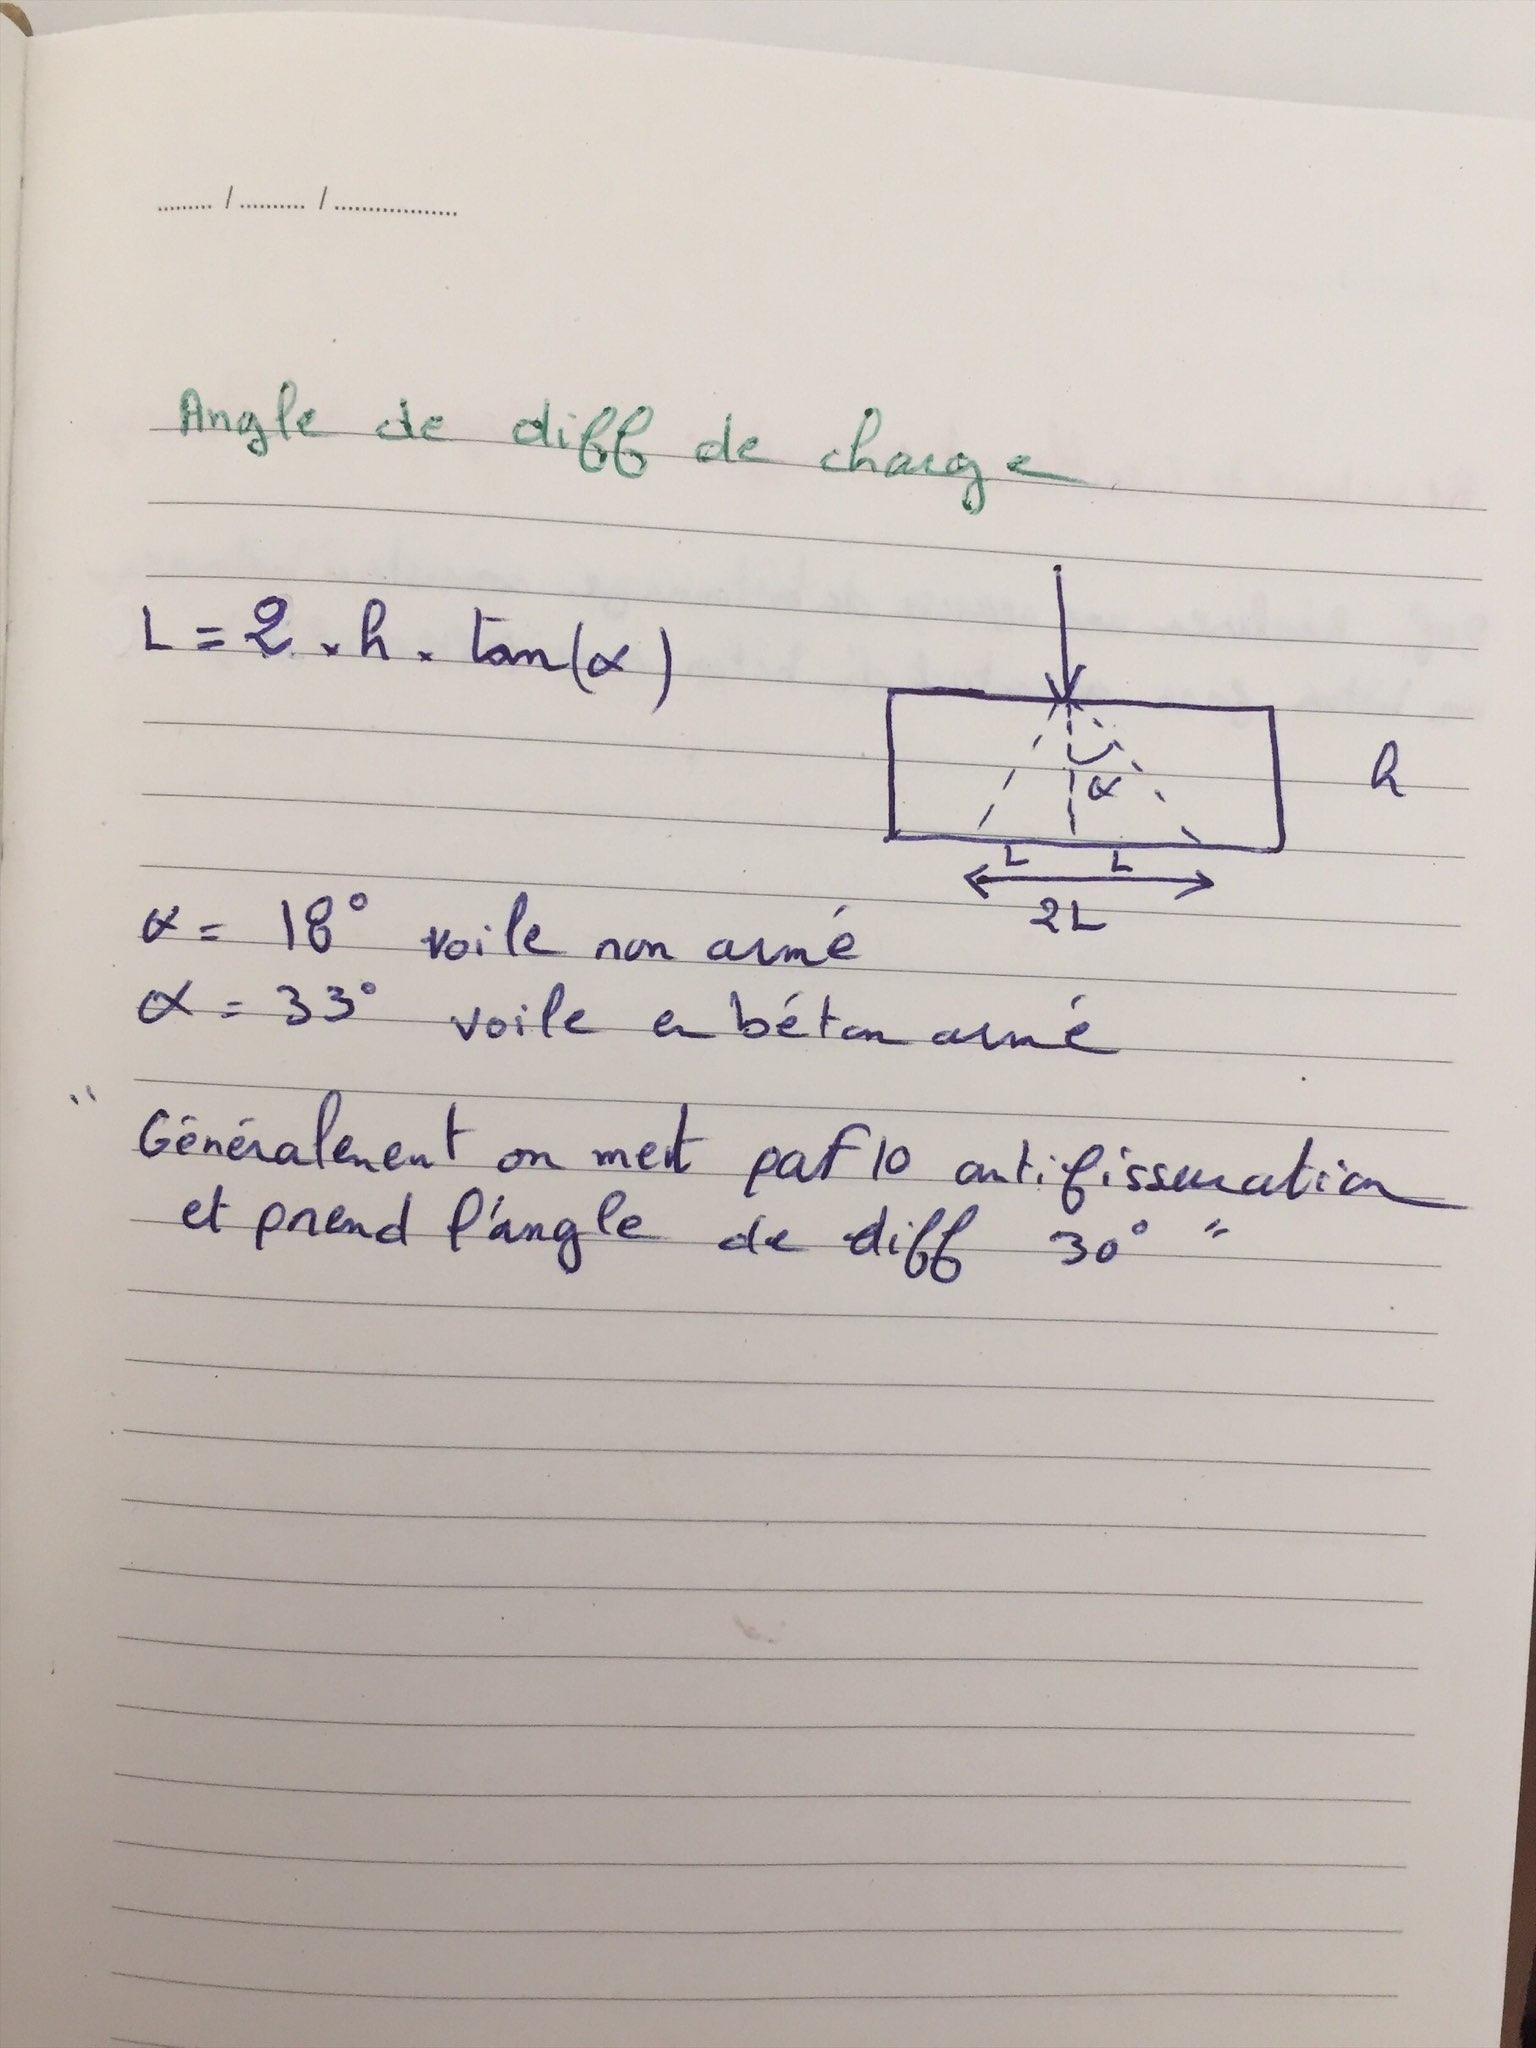 ......... / .......... / .................
Angle de diff de charge
L = 2 × h × tan(α)
h
α
L L
2L
α = 18° voile non armé
α = 33° voile en béton armé
" Généralement on met paf 10 antifissuration
et prend l'angle de diff 30° "